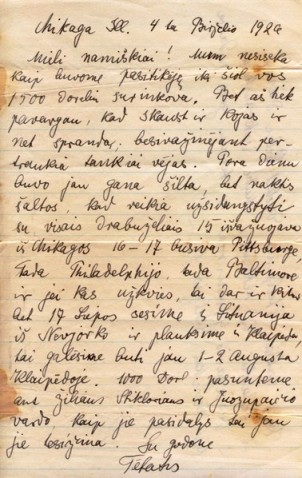 Chikaga Ill. 4 ta Birželio 1929
Mieli namiškiai! Mum nesiseka
kaip buvome pasitikėję iki šiol vos
1500 dorelin surinkova. Bet aš tiek
pavargau, kad skaust ir kojas ir
net sprandas, besivažinėjant per-
traukia tankiai vėjas. Pora dienu
buvo jau gana šilta, bet naktis
šaltos, kad reikia užsidangstyti
su visais drabužėliais 15 išvažiuojava
iš Čikagos 16-17 busiva Pittsburge,
tada Philadelphijo, tada Baltimore
ir jei kas užkvies, tai dar ir kitur
Ant 17 Liepos sesime į Lituania
iš Nevjorko ir plauksime į Klaipeda,
tai galėsime buti jau 1-2 Augusta
Klaipėdoje. 1000 Dorl pasuntėme
ant Ziliaus Stiklorians ir Juozupaičio
vardo kaip jie pasidalys ten jau
jie težinina. Su godone
Tėtatis